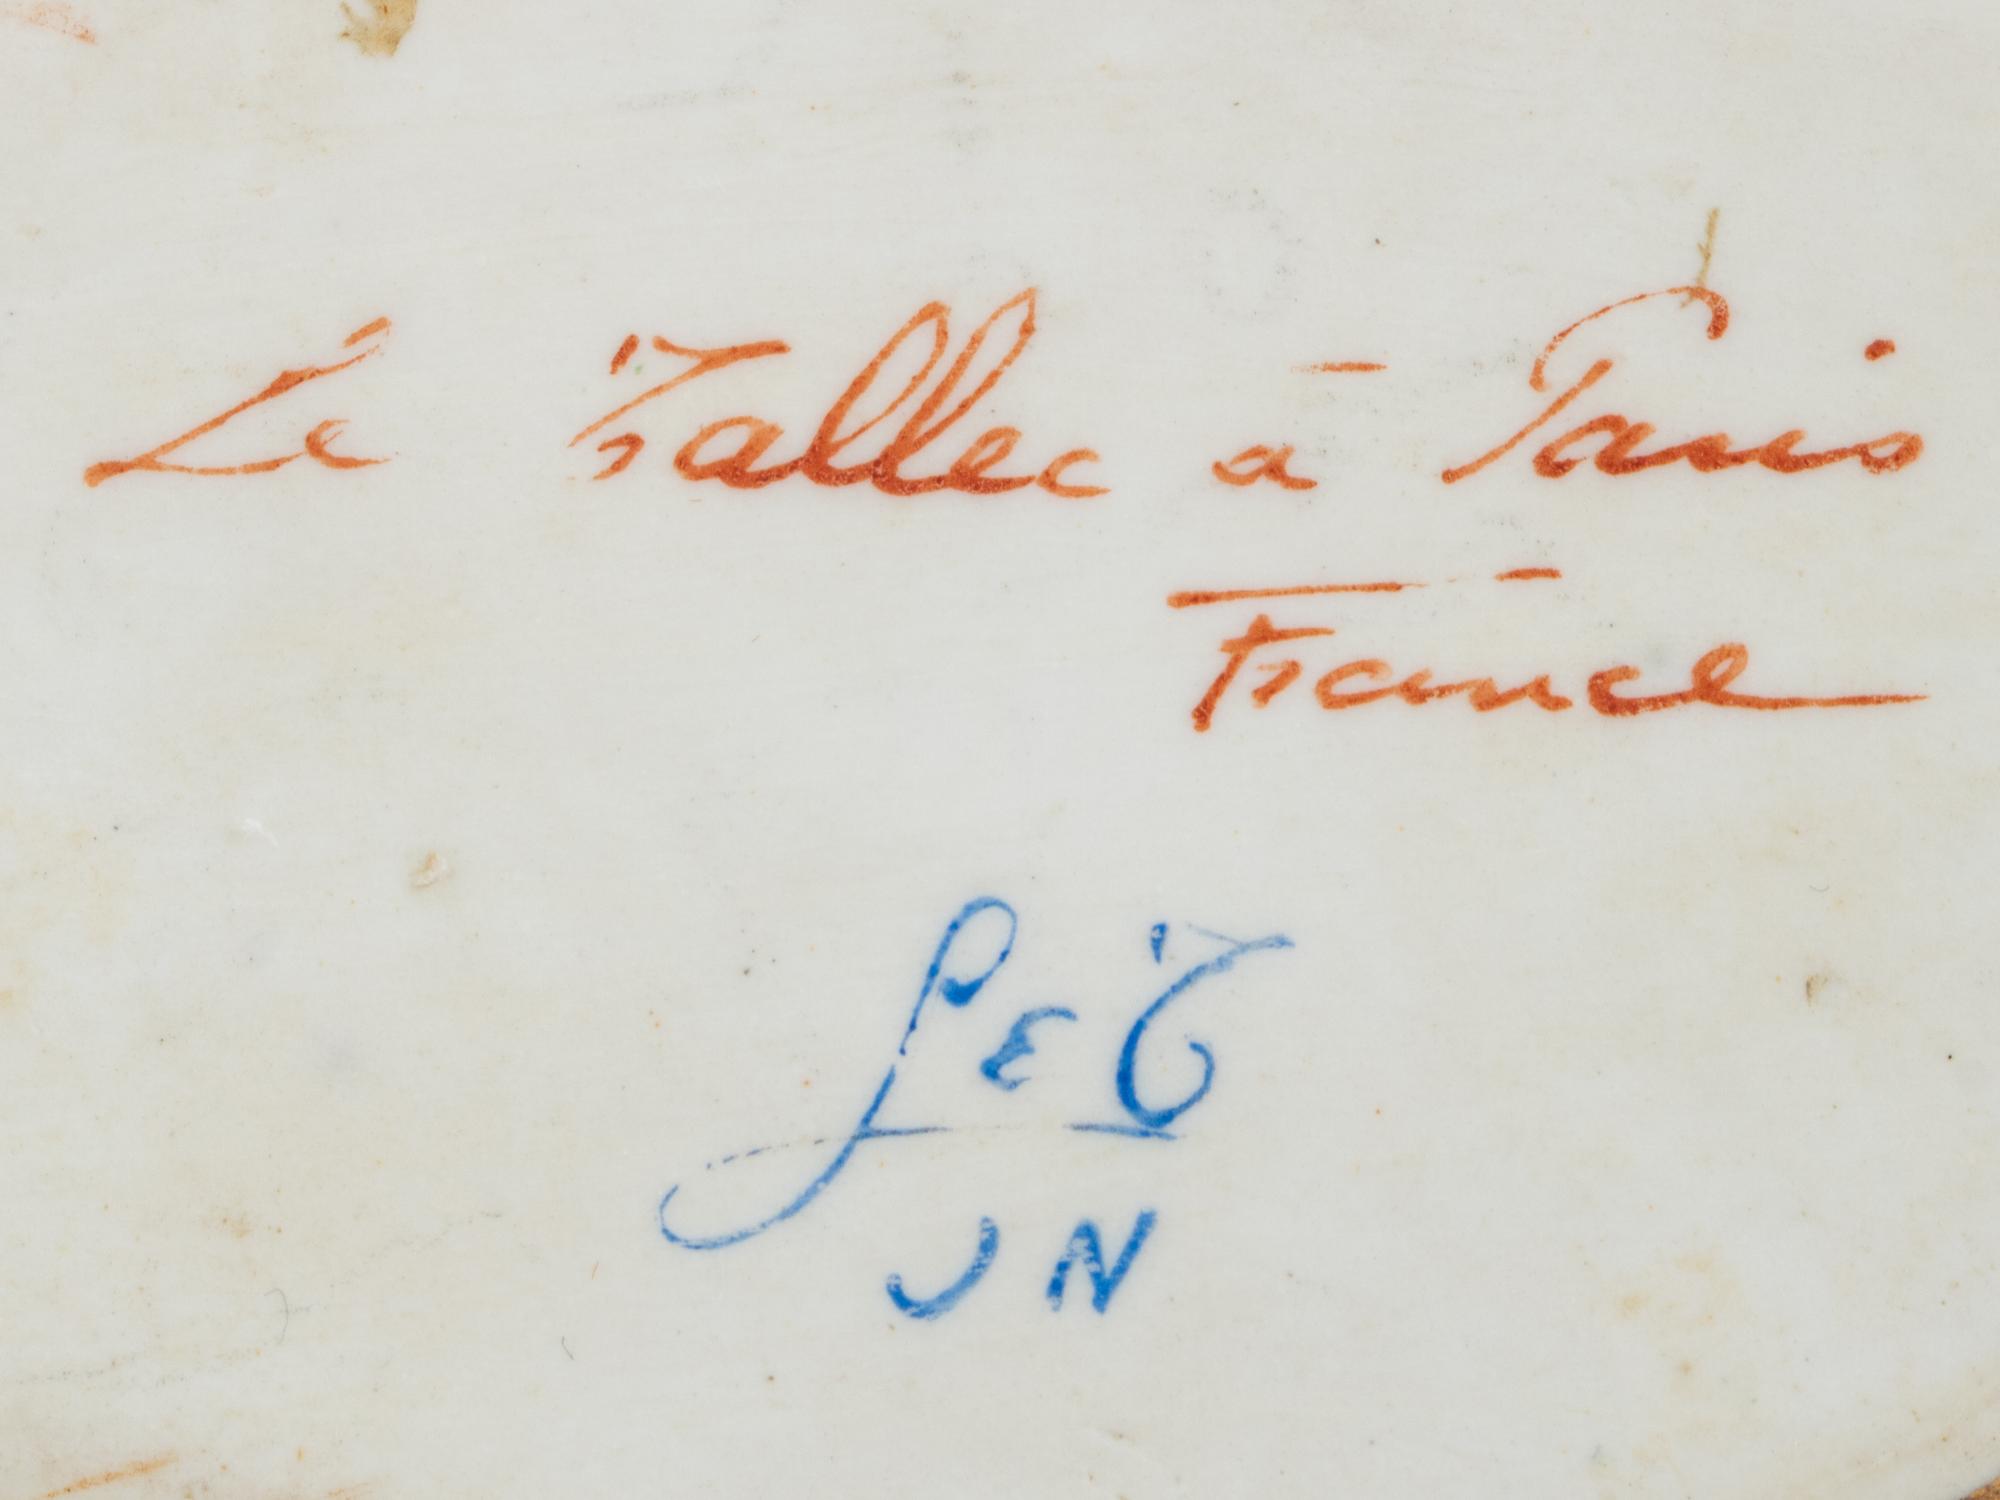 Le Tallec à Paris
France
LeT
JN